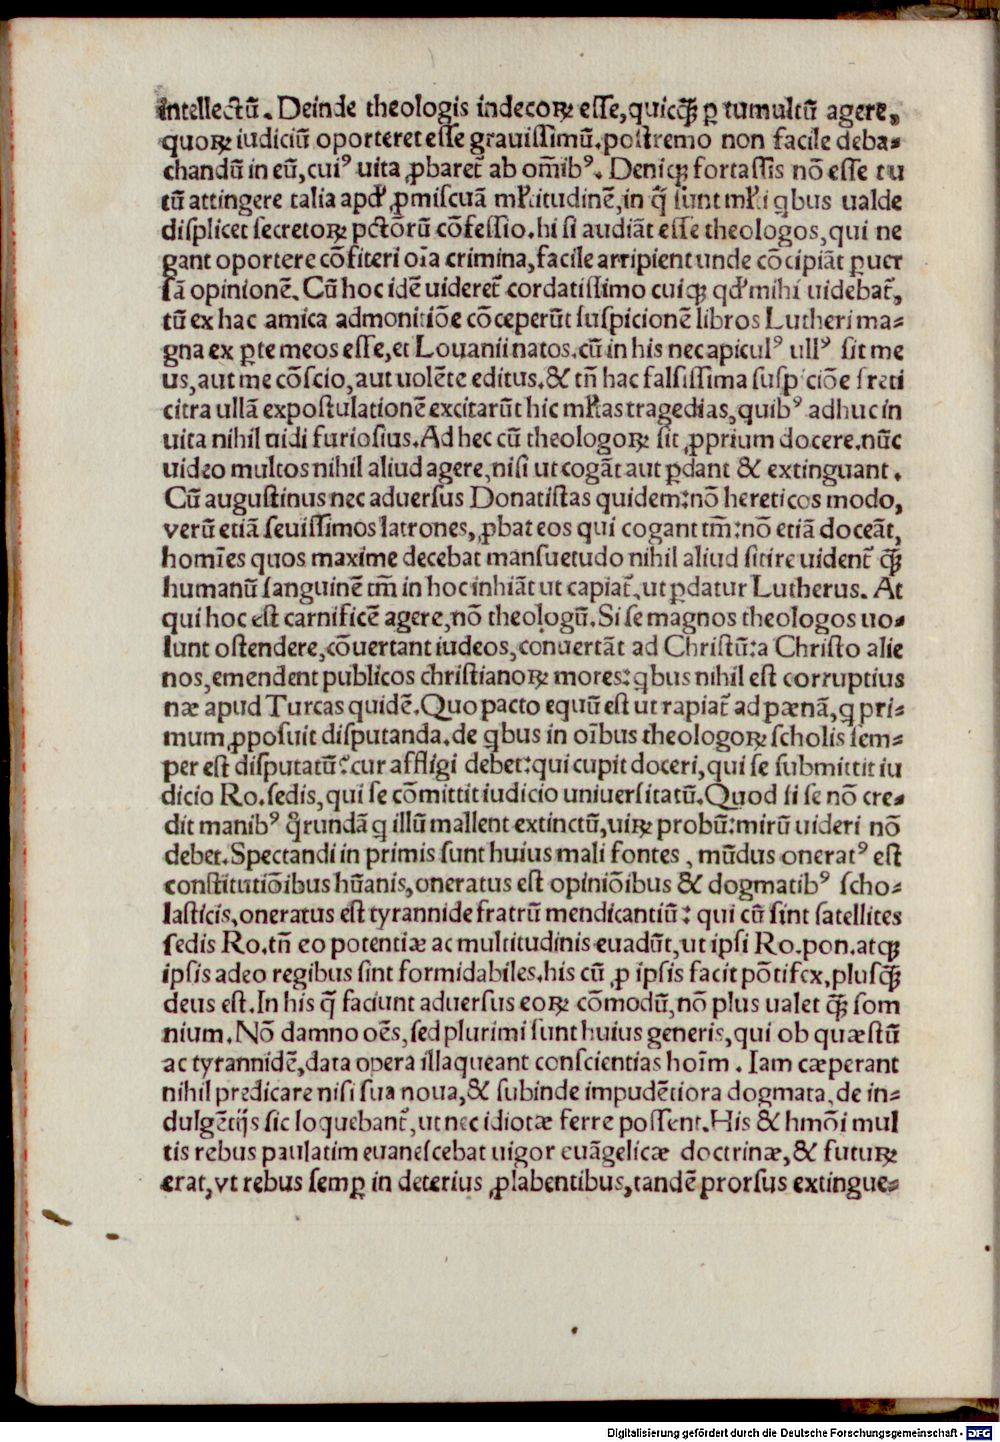 intellectū. Deinde theologis indecoꝝ esse, quicꝙ̃ ꝑ tumultū agere,
quoꝝ iudiciū oporteret esse grauissimū. postremo non facile deba⸗
chandū in eū, cuiꝰ uita ꝓbaret̃ ab om̄ibꝰ. Deniqꝫ fortassis nō esse tu
tū attingere talia apđ ꝓmiscuā mƚtitudinē, in q̃ sunt mƚti qbus ualde
displicet secretoꝝ pctōrū cōfessio. hi si audiāt esse theologos, qui ne
gant oportere cōfiteri oīa crimina, facile arripient unde cōcipiāt ꝑuer
sā opinionē. Cū hoc idē uideret̃ cordatissimo cuiqꝫ qđ mihi uidebat̃,
tū ex hac amica admonitiōe cōceperūt suspicionē libros Lutheri ma⸗
gna ex ꝑte meos esse, et Louanii natos. cū in his nec apiculꝰ ullꝰ sit me
us, aut me cōscio, aut uolēte editus. & tñ hac falsissima suspiciōe freti
citra ullā expostulationē excitarūt hic mƚtas tragedias, quibꝰ adhuc in
uita nihil uidi furiosius. Ad hec cū theologoꝝ sit ꝓprium docere. nūc
uideo multos nihil aliud agere, nisi ut cogāt aut ꝑdant & extinguant.
Cū augustinus nec aduersus Donatistas quidem: nō hereticos modo,
verū etiā seuissimos latrones, ꝓbat eos qui cogant tm̄: nō etiā doceāt,
homīes quos maxime decebat mansuetudo nihil aliud sitire uident̃ ꝙ̃
humanū sanguinē tm̄ in hoc inhiāt ut capiat̃, ut ꝑdatur Lutherus. At
qui hoc est carnificē agere, nō theologū. Si se magnos theologos uo⸗
lunt ostendere, cōuertant iudeos, conuertāt ad Christū: a Christo alie
nos, emendent publicos christianoꝝ mores: qbus nihil est corruptius
næ apud Turcas quidē. Quo pacto equū est ut rapiat̃ ad pænā, q pri⸗
mum ꝓposuit disputanda. de qbus in oībus theologoꝝ scholis sem⸗
per est disputatū: cur affligi debet: qui cupit doceri, qui se submittit iu
dicio Ro. sedis, qui se cōmittit iudicio uniuersitatū. Quod si se nō cre⸗
dit manibꝰ q̃rundā q illū mallent extinctū, uiꝝ probū: mirū uideri nō
debet. Spectandi in primis sunt huius mali fontes, mūdus oneratꝰ est
constitutiōibus hūanis, oneratus est opiniōibus & dogmatibꝰ scho⸗
lasticis, oneratus est tyrannide fratrū mendicantiū: qui cū sint satellites
sedis Ro. tñ eo potentiæ ac multitudinis euadūt, ut ipsi Ro. pon. atqꝫ
ipsis adeo regibus sint formidabiles. his cū ꝓ ipsis facit pōtifex, plusꝙ̃
deus est. In his q̃ faciunt aduersus eoꝝ cōmodū, nō plus ualet ꝙ̃ som
nium. Nō damno oēs, sed plurimi sunt huius generis, qui ob quæstū
ac tyrannidē, data opera illaqueant conscientias hoīm. Iam cæperant
nihil predicare nisi sua noua, & subinde impudētiora dogmata, de in⸗
dulgētijs sic loquebant̃, ut nec idiotæ ferre possent. His & hmōi mul
tis rebus paulatim euanescebat uigor euāgelicæ doctrinæ, & futuꝝ
erat, vt rebus semꝑ in deterius ꝓlabentibus, tandē prorsus extingue⸗
Digitalisierung gefördert durch die Deutsche Forschungsgemeinschaft - DFG